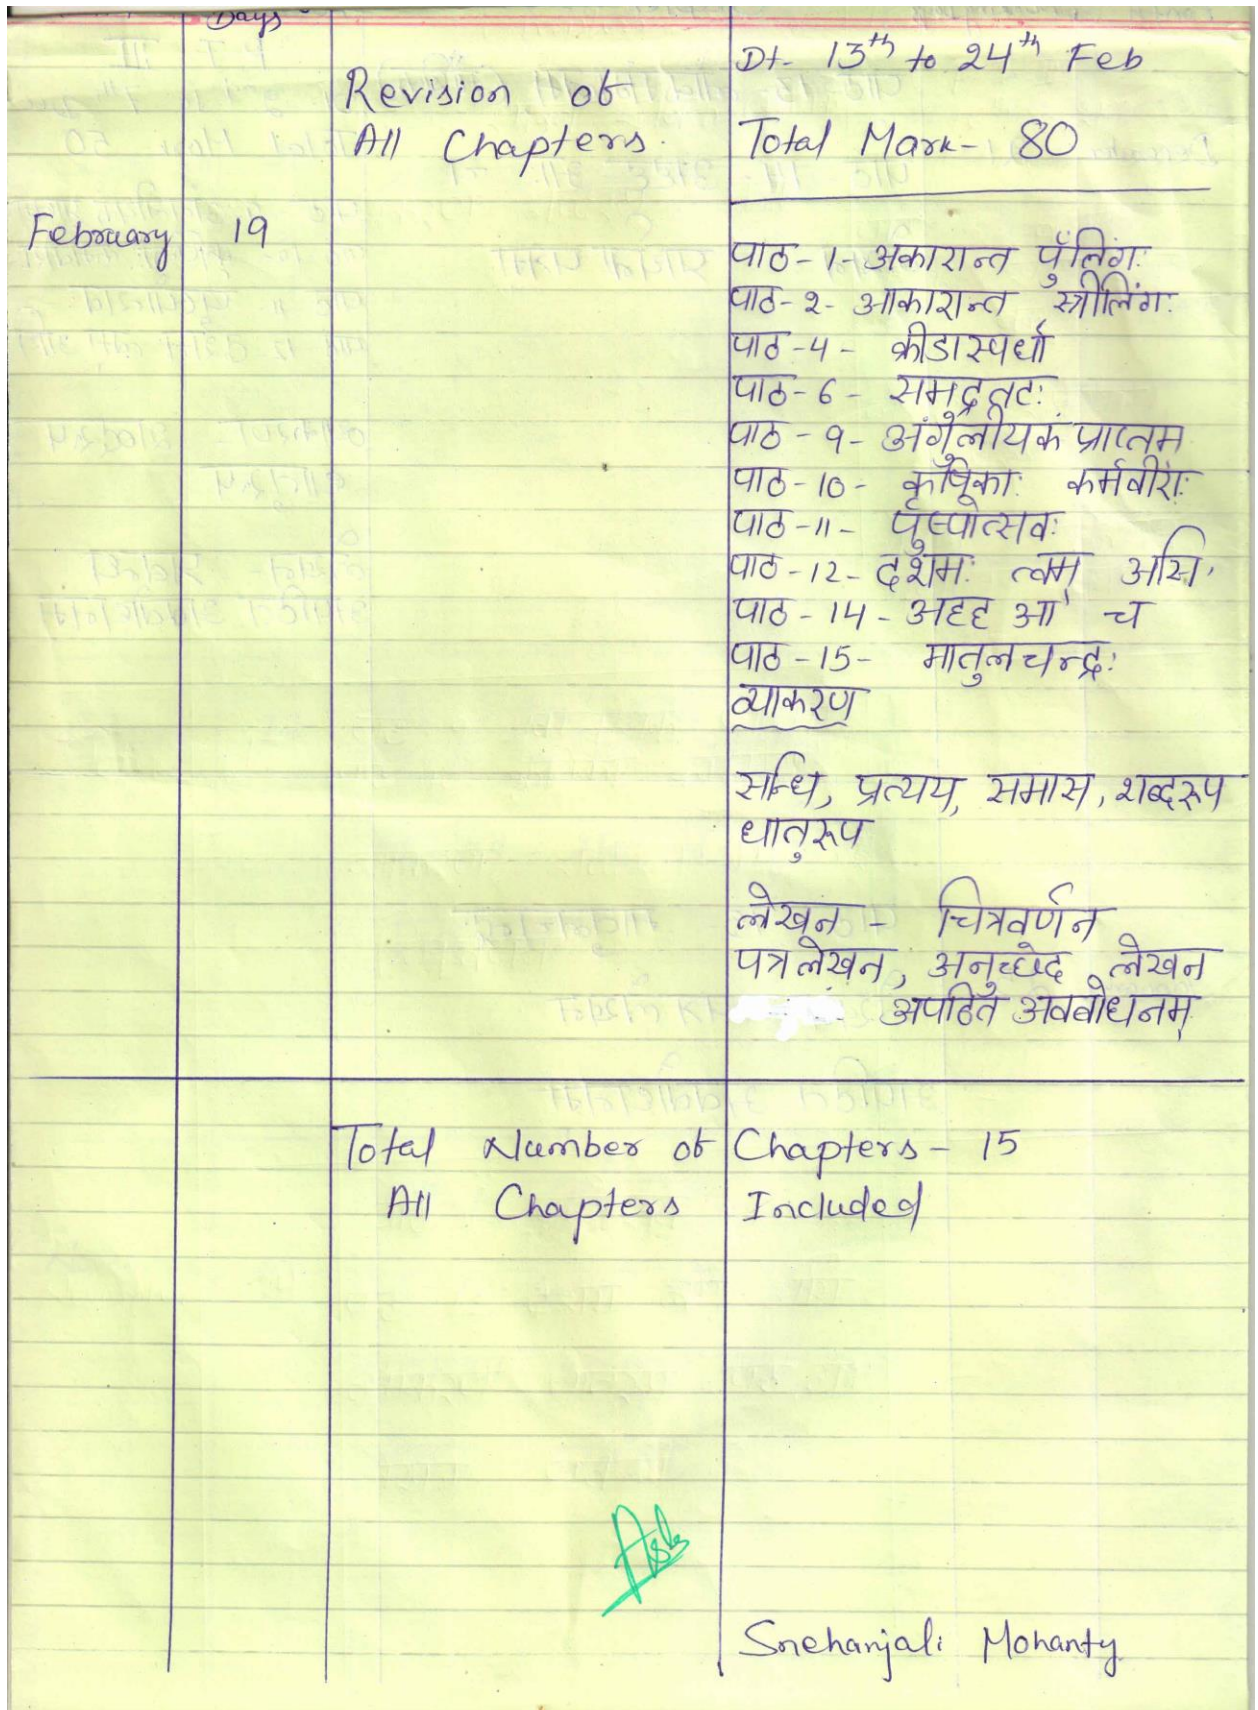 Days
Dt- 13th to 24th Feb
Revision of
All Chapters.
Total Mark- 80
February 19
पाठ-1-अकारान्त पुँलिंगः
पाठ-2- आकारान्त स्त्रीलिंगः
पाठ-4- क्रीडास्पर्धा
पाठ-6- समुद्रतटः
पाठ-9- अंगुलीयकं प्राप्तम
पाठ-10- कृषिकाः कर्मवीराः
पाठ-11- पुष्पोत्सवः
पाठ-12- दशमः त्वम् असि
पाठ-14- अहह आः च
पाठ-15- मातुलचन्द्रः
व्याकरण
सन्धि, प्रत्यय, समास, शब्दरूप
धातुरूप
लेखन - चित्रवर्णन
पत्रलेखन, अनुच्छेद लेखन
अपठित अवबोधनम्
Total Number of Chapters- 15
All Chapters Included
Snehanjali Mohanty